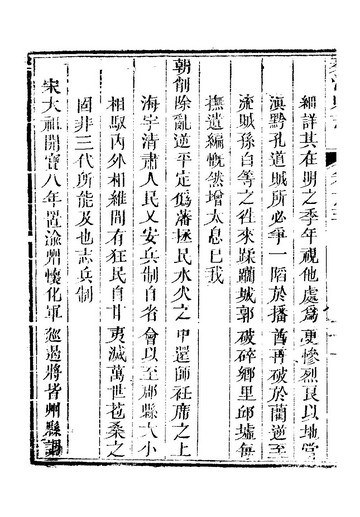 細詳其在明之季年視他處爲更慘烈良以地當
滇黔孔道賊所必爭一陷於播酋再破於藺逆至
流賊孫白等之往來蹂躪城郭破碎鄉里邱墟每
撫遺編慨然增太息已我
朝削除亂逆平定僞藩拯民水火之中還師衽席之上
海宇清肅人民乂安兵制自省會以至郡縣大小
相馭內外相維間有狂民自甘夷滅萬世苞桑之
固非三代所能及也志兵制
宋太祖開寶八年置渝州懷化軍